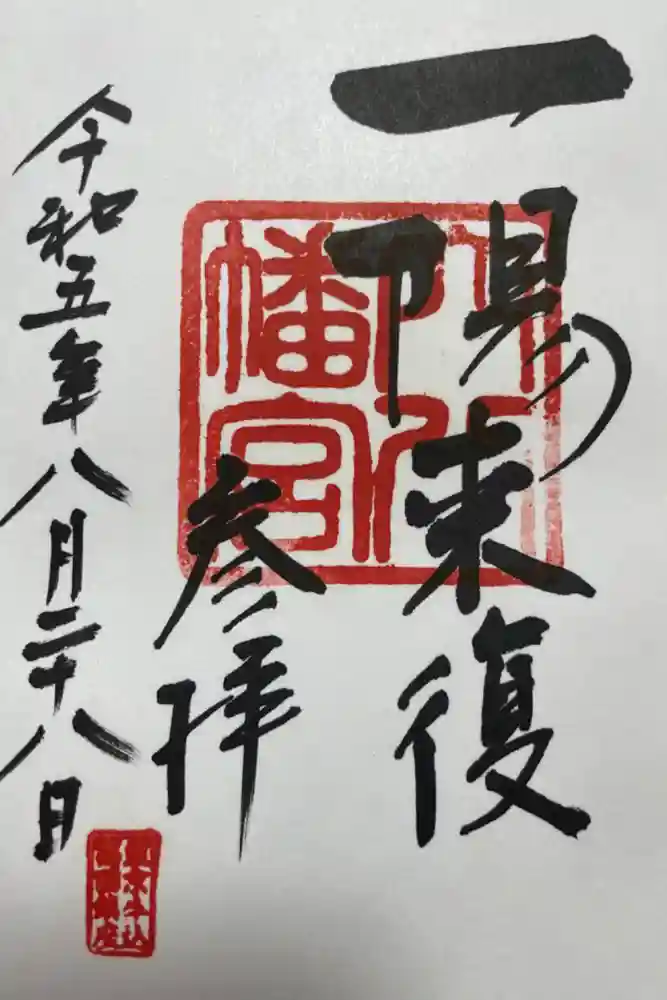 一陽来復
穴八
幡宮
参拝
令和五年八月二十八日